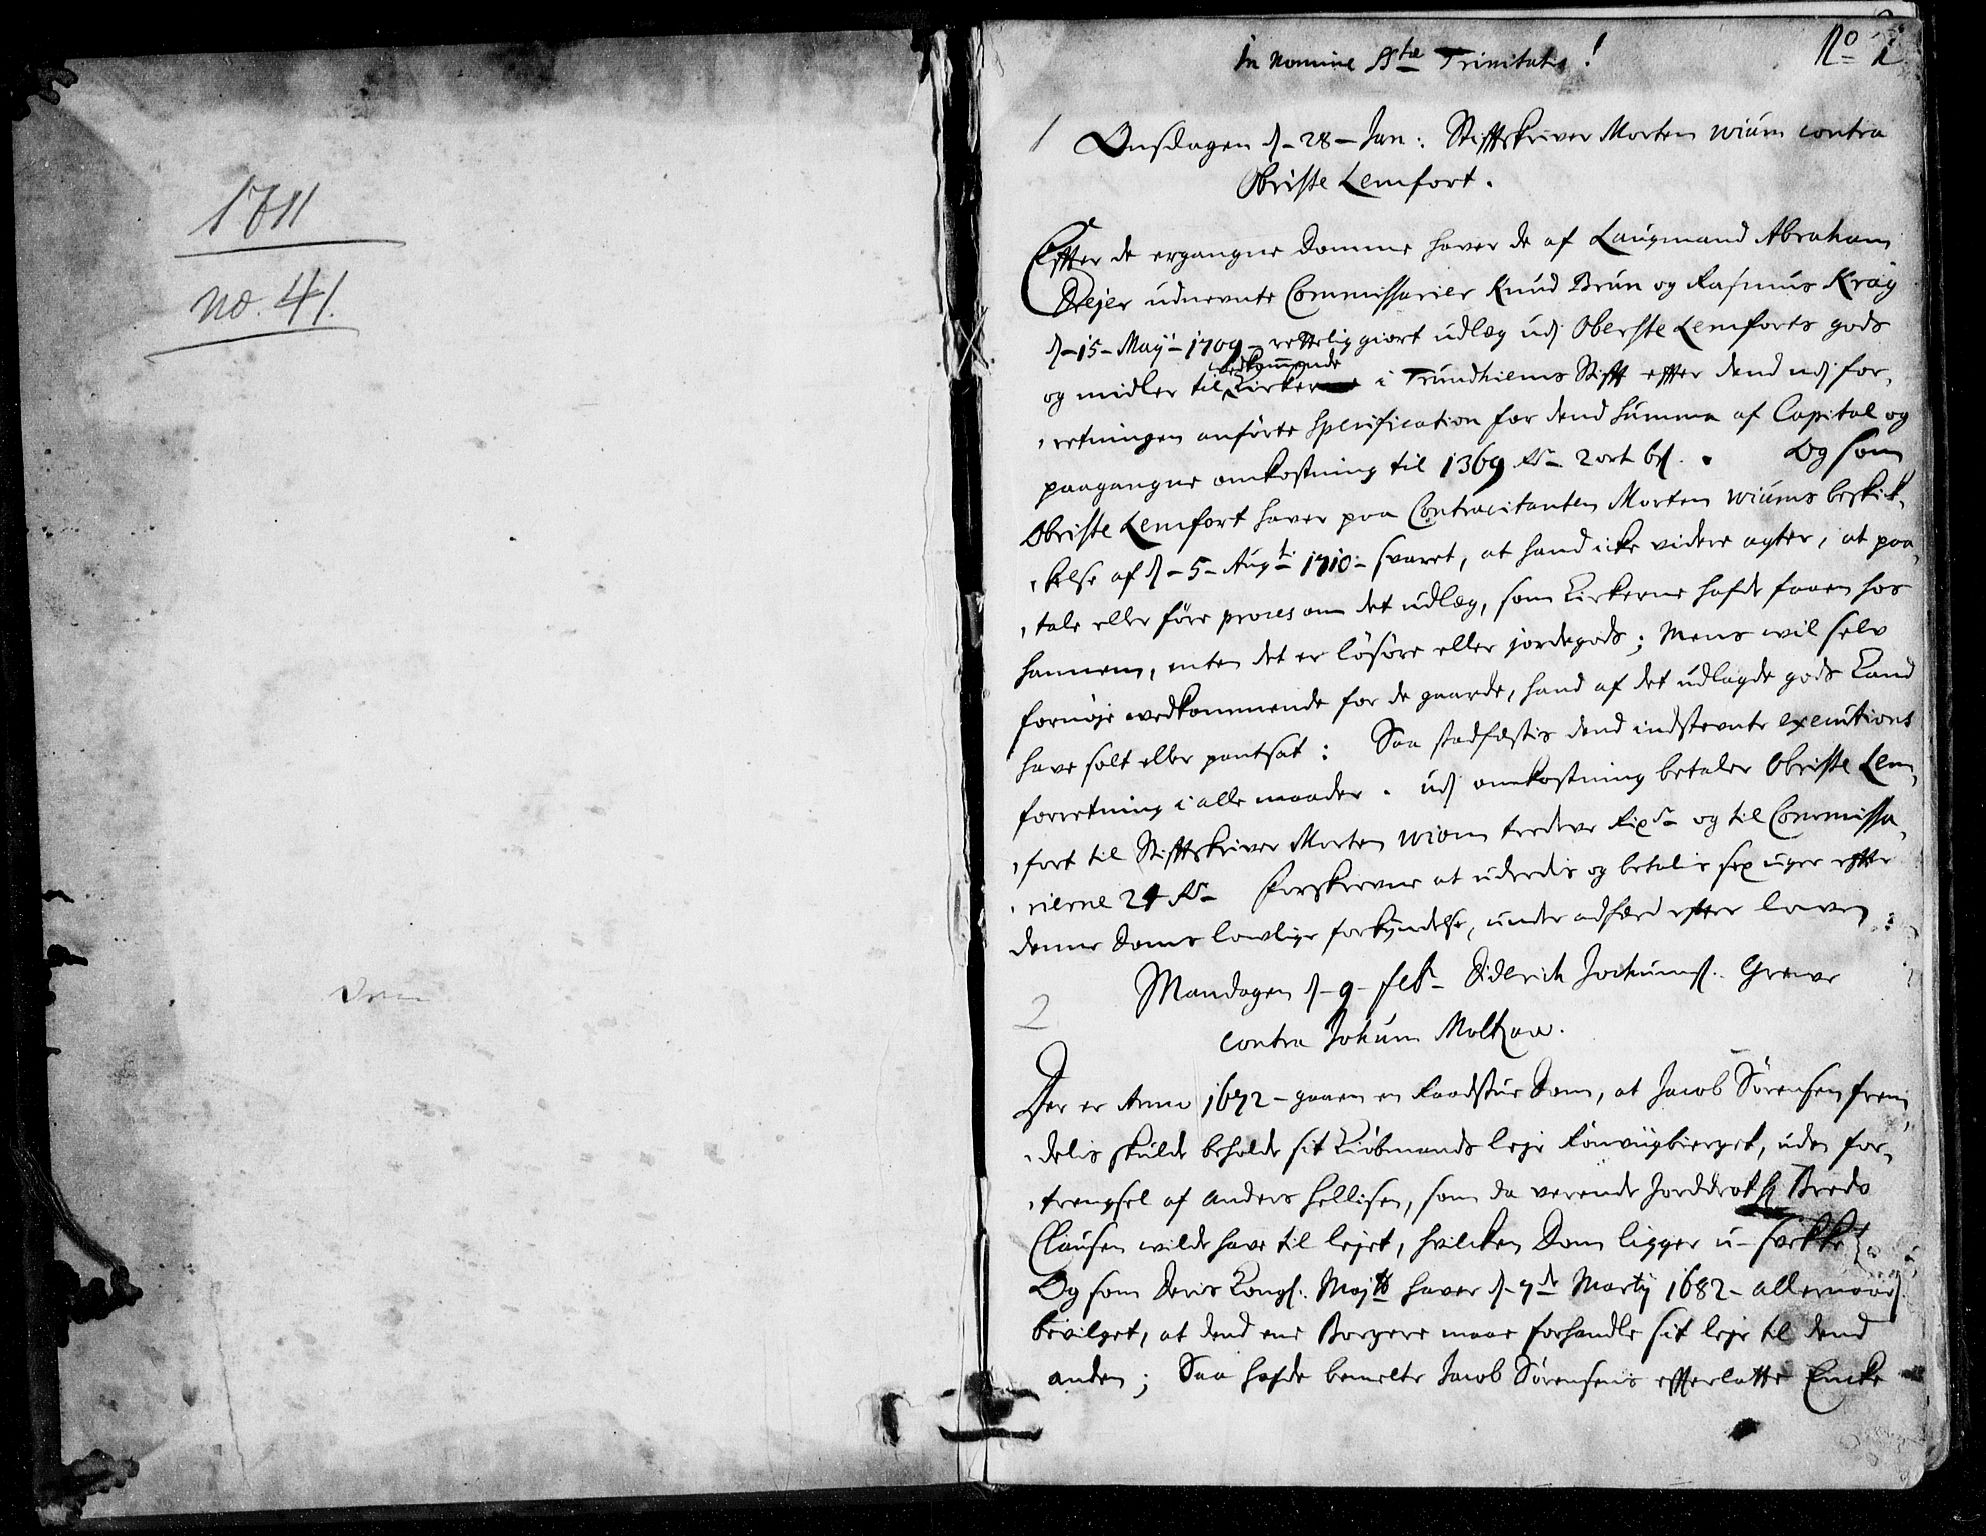 1711
no. 41.
No 1
In nomine Stæ Trinitatis!
1 Onsdagen d. 28 Jan: Stifftskriver Morten Wium contra
Obriste Lemfort.
Effter de ergangne Domme haver de af Laugmand Abraham
Drejer udnevnte Commissarier Knud Brun og Rasmus Krag
d. 15 Maÿ 1709 rettelig giort udlæg udj Oberste Lemforts gods
vedkommende
og midler til Kirker i Trundhiems Stifft effter dend udj for,
,retningen anförte Specification for dend Summa af Capital og
paagangne omkostning til 1369 Rdr 2 ort 6 s. Og som
Obriste Lemfort haver paa Contracitanten Morten Wiums beskik,
,kelse af d. 5 Augti 1710 svaret, at hand icke videre agter, at paa,
,tale eller före proces om det udlæg, som Kirkerne hafde faaen hos
hannem, enten det er lösöre eller jordegods; Mens wil selv
fornöje wedkommende for de gaarde, hand af det udlagde gods kand
have solt eller pantsat: Saa stadfæstis dend indstevnte executions
forretning i alle maader. udj omkostning betaler Obriste Lem,
,fort til Stifftskriver Morten Wium tredeve Rixdr og til Commissa,
,rierne 24 Rdr forskrevne at uderedis og betalis sex uger effter
denne Doms lovlige forkyndelse, under adfærd effter loven:
2 Mandagen d. 9 Febr Diderich Jochums. Greve
contra Johum Moltzau.
Der er Anno 1672 gaaen en Raadstue Dom, at Jacob Sörensen frem,
,delis skulde beholde sit Kiöbmands leje Rönvigbierget, uden for,
,trengsel af Anders Hellisen, som da verende Jorddrot H Bredo
Clausen wilde have til lejet, hvilcken Dom ligger u-svekket
Og som Deris Kongl. Maytt haver d. 7de Martÿ 1682 allernaad.
bevilget, at dend ene Borgere maae forhandle sit leje til dend
anden; Saa hafde bemelte Jacob Sörensens effterlatte Encke